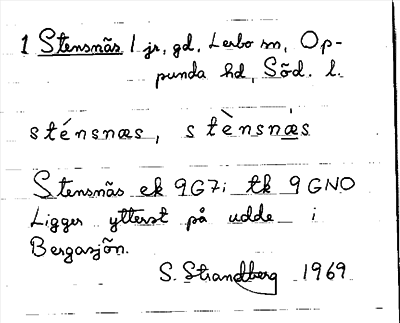 1 Stensnäs 1 jr, gd, Lerbo sn, Op-
punda hd, Söd. l.
sténsnæs, stènsnæ̀s
Stensnäs ek 9G7i tk 9GNO
Ligger ytterst på udde i
Bergasjön.
S. Strandberg 1969